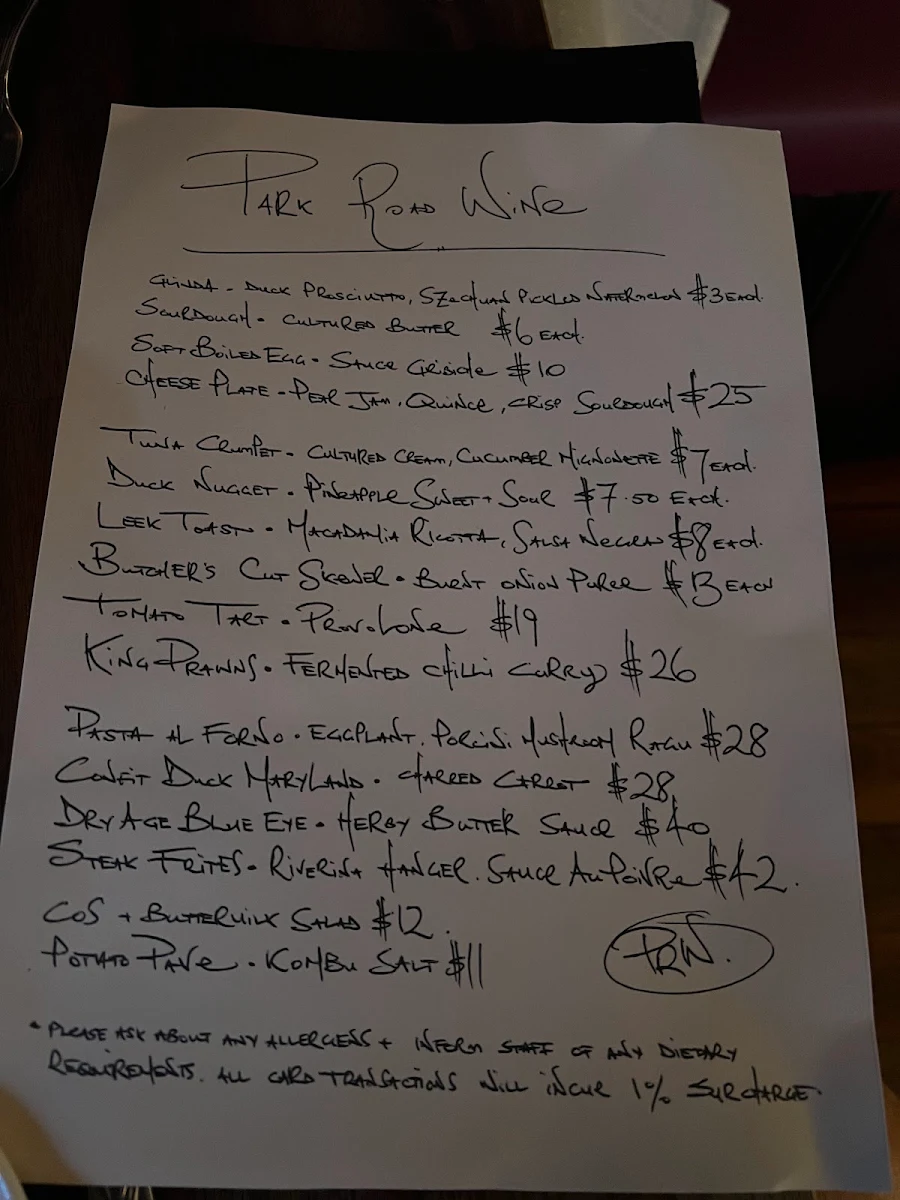 Park Road Wine
Gilda - Duck Prosciutto, Szechuan Pickled Watermelon $3 Each.
Sourdough - Cultured Butter $6 Each.
Soft Boiled Egg - Sauce Gribiche $10
Cheese Plate - Pear Jam, Quince, Crisp Sourdough $25
Tuna Crumpet - Cultured Cream, Cucumber Mignonette $7 Each.
Duck Nugget - Pineapple Sweet + Sour $7.50 Each.
Leek Toast - Macadamia Ricotta, Salsa Negra $8 Each.
Butcher's Cut Skewer - Burnt Onion Puree $13 Each
Tomato Tart - Provolone $19
King Prawns - Fermented Chilli Curry $26
Pasta Al Forno - Eggplant, Porcini Mushroom Ragu $28
Confit Duck Maryland - Charred Carrot $28
Dry Age Blue Eye - Herby Butter Sauce $40
Steak Frites - Riverina Hanger. Sauce Au Poivre $42.
Cos + Buttermilk Salad $12.
Potato Pave - Kombu Salt $11
PRW.
* Please ask about any allergens + inform staff of any dietary
requirements. All card transactions will incur 1% surcharge.